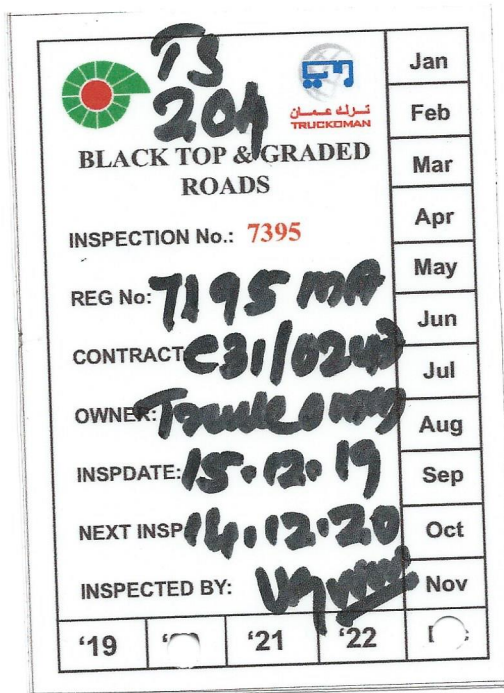 TS
204
ترك عمان
TRUCKOMAN
BLACK TOP & GRADED
ROADS
INSPECTION No.: 7395
REG No: 7195 MA
CONTRACT C31/0243
OWNER: Truckoman
INSPDATE: 15.12.19
NEXT INSP 14.12.20
INSPECTED BY:
Jan
Feb
Mar
Apr
May
Jun
Jul
Aug
Sep
Oct
Nov
'19
'21
'22